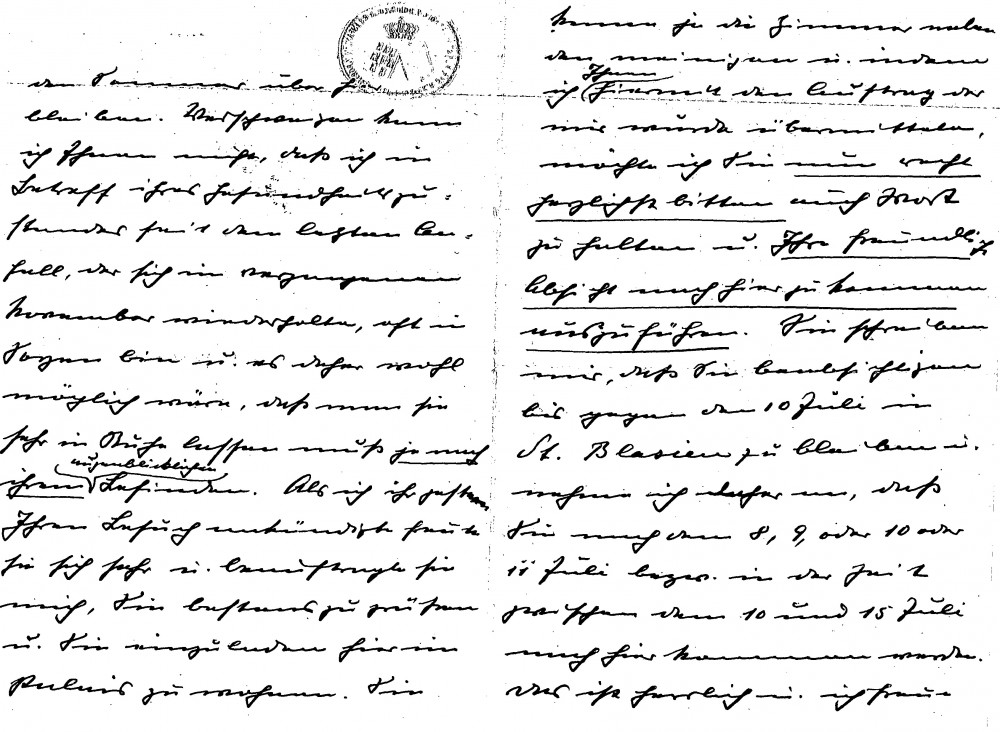 den Sommer über hier
bleiben. Verschweigen kann
ich Ihnen nicht, daß ich in
Betreff ihres Gesundheitszu-
standes seit dem letzten An-
fall, der sich im vergangenen
November wiederholte, oft in
Sorgen bin u. es daher wohl
möglich wäre, daß man sie
sehr in Ruhe lassen muß je nach
augenblicklichen
ihrem Befinden. Als ich ihr gestern
Ihren Besuch ankündigte freute
sie sich sehr u. beauftragte sie
mich, Sie bestens zu grüßen
u. Sie einzuladen hier im
Palais zu wohnen. Sie
kennen ja die Zimmer neben
den meinigen u. indem
Ihnen
ich hiermit den Auftrag der
mir wurde übermittele,
möchte ich Sie nun recht
herzlichst bitten auch Wort
zu halten u. Ihre freundlich
Absicht nach hier zu kommen
auszuführen. Sie schreiben
mir, daß Sie beabsichtigen
bis gegen den 10 Juli in
St. Blasien zu bleiben u.
nehme ich daher an, daß
Sie nach dem 8, 9, oder 10 oder
11 Juli bezw. in der Zeit
zwischen dem 10 und 15 Juli
nach hier kommen werden.
Das ist herrlich u. ich freue